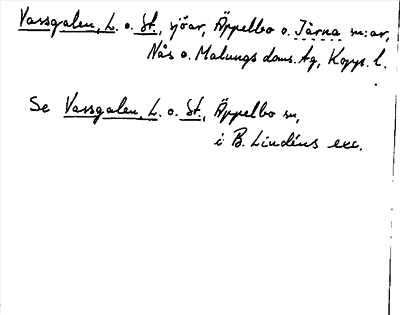 Vassgalen, L. o. St., sjöar, Äppelbo o. Järna sn:ar,
Nås o. Malungs doms. tg, Kopp. l.
Se Vassgalen, L. o. St., Äppelbo sn,
i B. Lindéns exc.